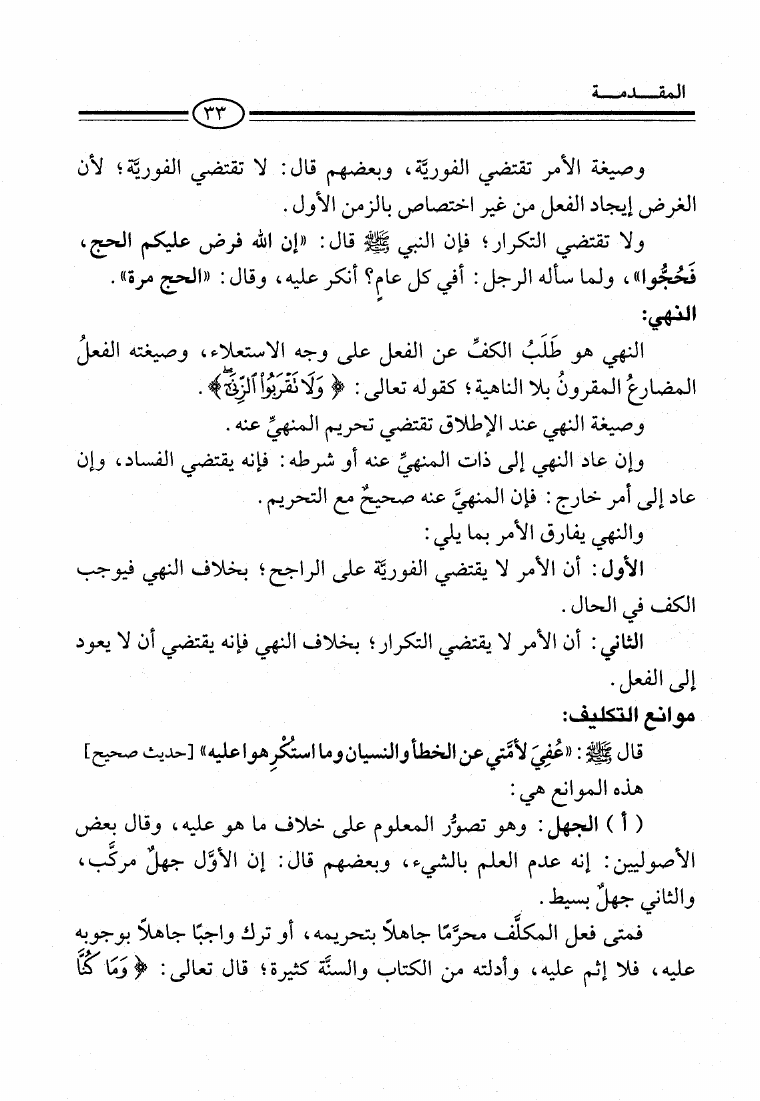 المقدمة
٣٣
وصيغة الأمر تقتضي الفوريَّة، وبعضهم قال: لا تقتضي الفوريَّة؛ لأن
الغرض إيجاد الفعل من غير اختصاص بالزمن الأول.
ولا تقتضي التكرار؛ فإن النبي ﷺ قال: «إن الله فرض عليكم الحج،
فَحُجُّوا»، ولما سأله الرجل: أفي كل عامٍ؟ أنكر عليه، وقال: «الحج مرة».
النهي:
النهي هو طَلَبُ الكفِّ عن الفعل على وجه الاستعلاء، وصيغته الفعلُ
المضارعُ المقرونُ بلا الناهية؛ كقوله تعالى: ﴿وَلَا نَقْرَبُوا۟ ٱلزِّنَىٰٓ﴾.
وصيغة النهي عند الإطلاق تقتضي تحريم المنهيِّ عنه.
وإن عاد النهي إلى ذات المنهيِّ عنه أو شرطه: فإنه يقتضي الفساد، وإن
عاد إلى أمر خارج: فإن المنهيَّ عنه صحيحٌ مع التحريم.
والنهي يفارق الأمر بما يلي:
الأول: أن الأمر لا يقتضي الفوريَّة على الراجح؛ بخلاف النهي فيوجب
الكف في الحال.
الثاني: أن الأمر لا يقتضي التكرار؛ بخلاف النهي فإنه يقتضي أن لا يعود
إلى الفعل.
موانع التكليف:
قال ﷺ: «عُفِيَ لأمَّتي عن الخطأ والنسيان وما استُكْرِهوا عليه» [حديث صحيح]
هذه الموانع هي:
(أ) الجهل: وهو تصوُّر المعلوم على خلاف ما هو عليه، وقال بعض
الأصوليين: إنه عدم العلم بالشيء، وبعضهم قال: إن الأوَّل جهلٌ مركَّب،
والثاني جهلٌ بسيط.
فمتى فعل المكلَّف محرَّمًا جاهلاً بتحريمه، أو ترك واجبًا جاهلاً بوجوبه
عليه، فلا إثم عليه، وأدلته من الكتاب والسنَّة كثيرة؛ قال تعالى: ﴿وَمَا كُنَّا